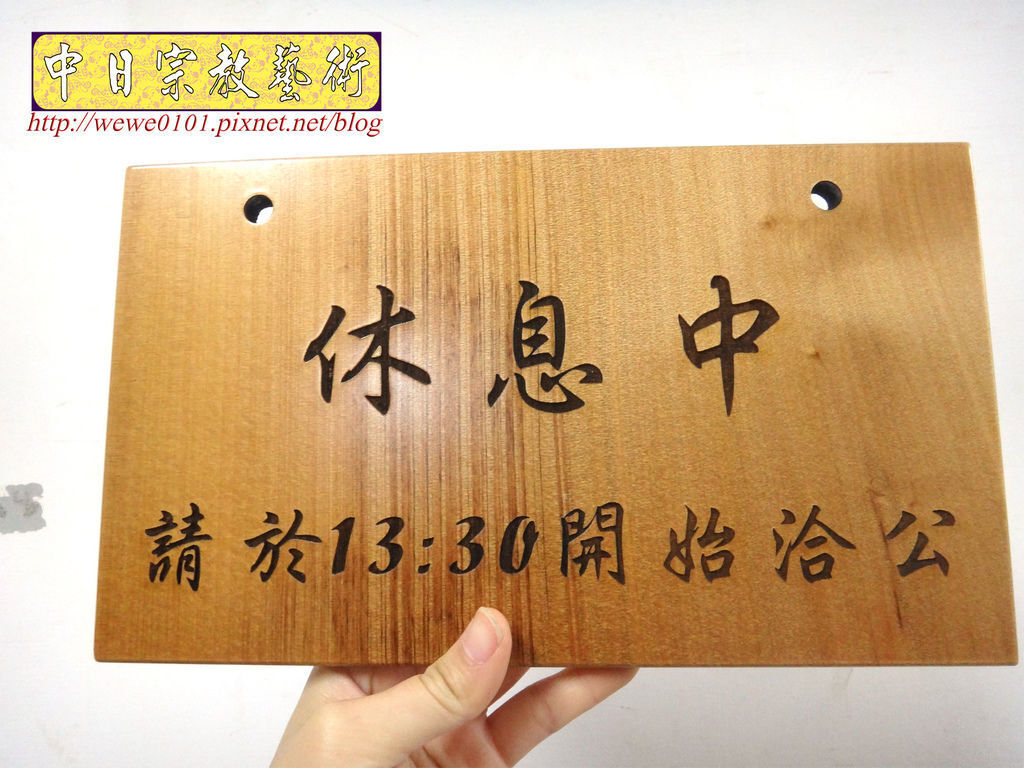 中日宗教藝術
http://wewe0101.pixnet.net/blog
休息中
請於13:30開始洽公